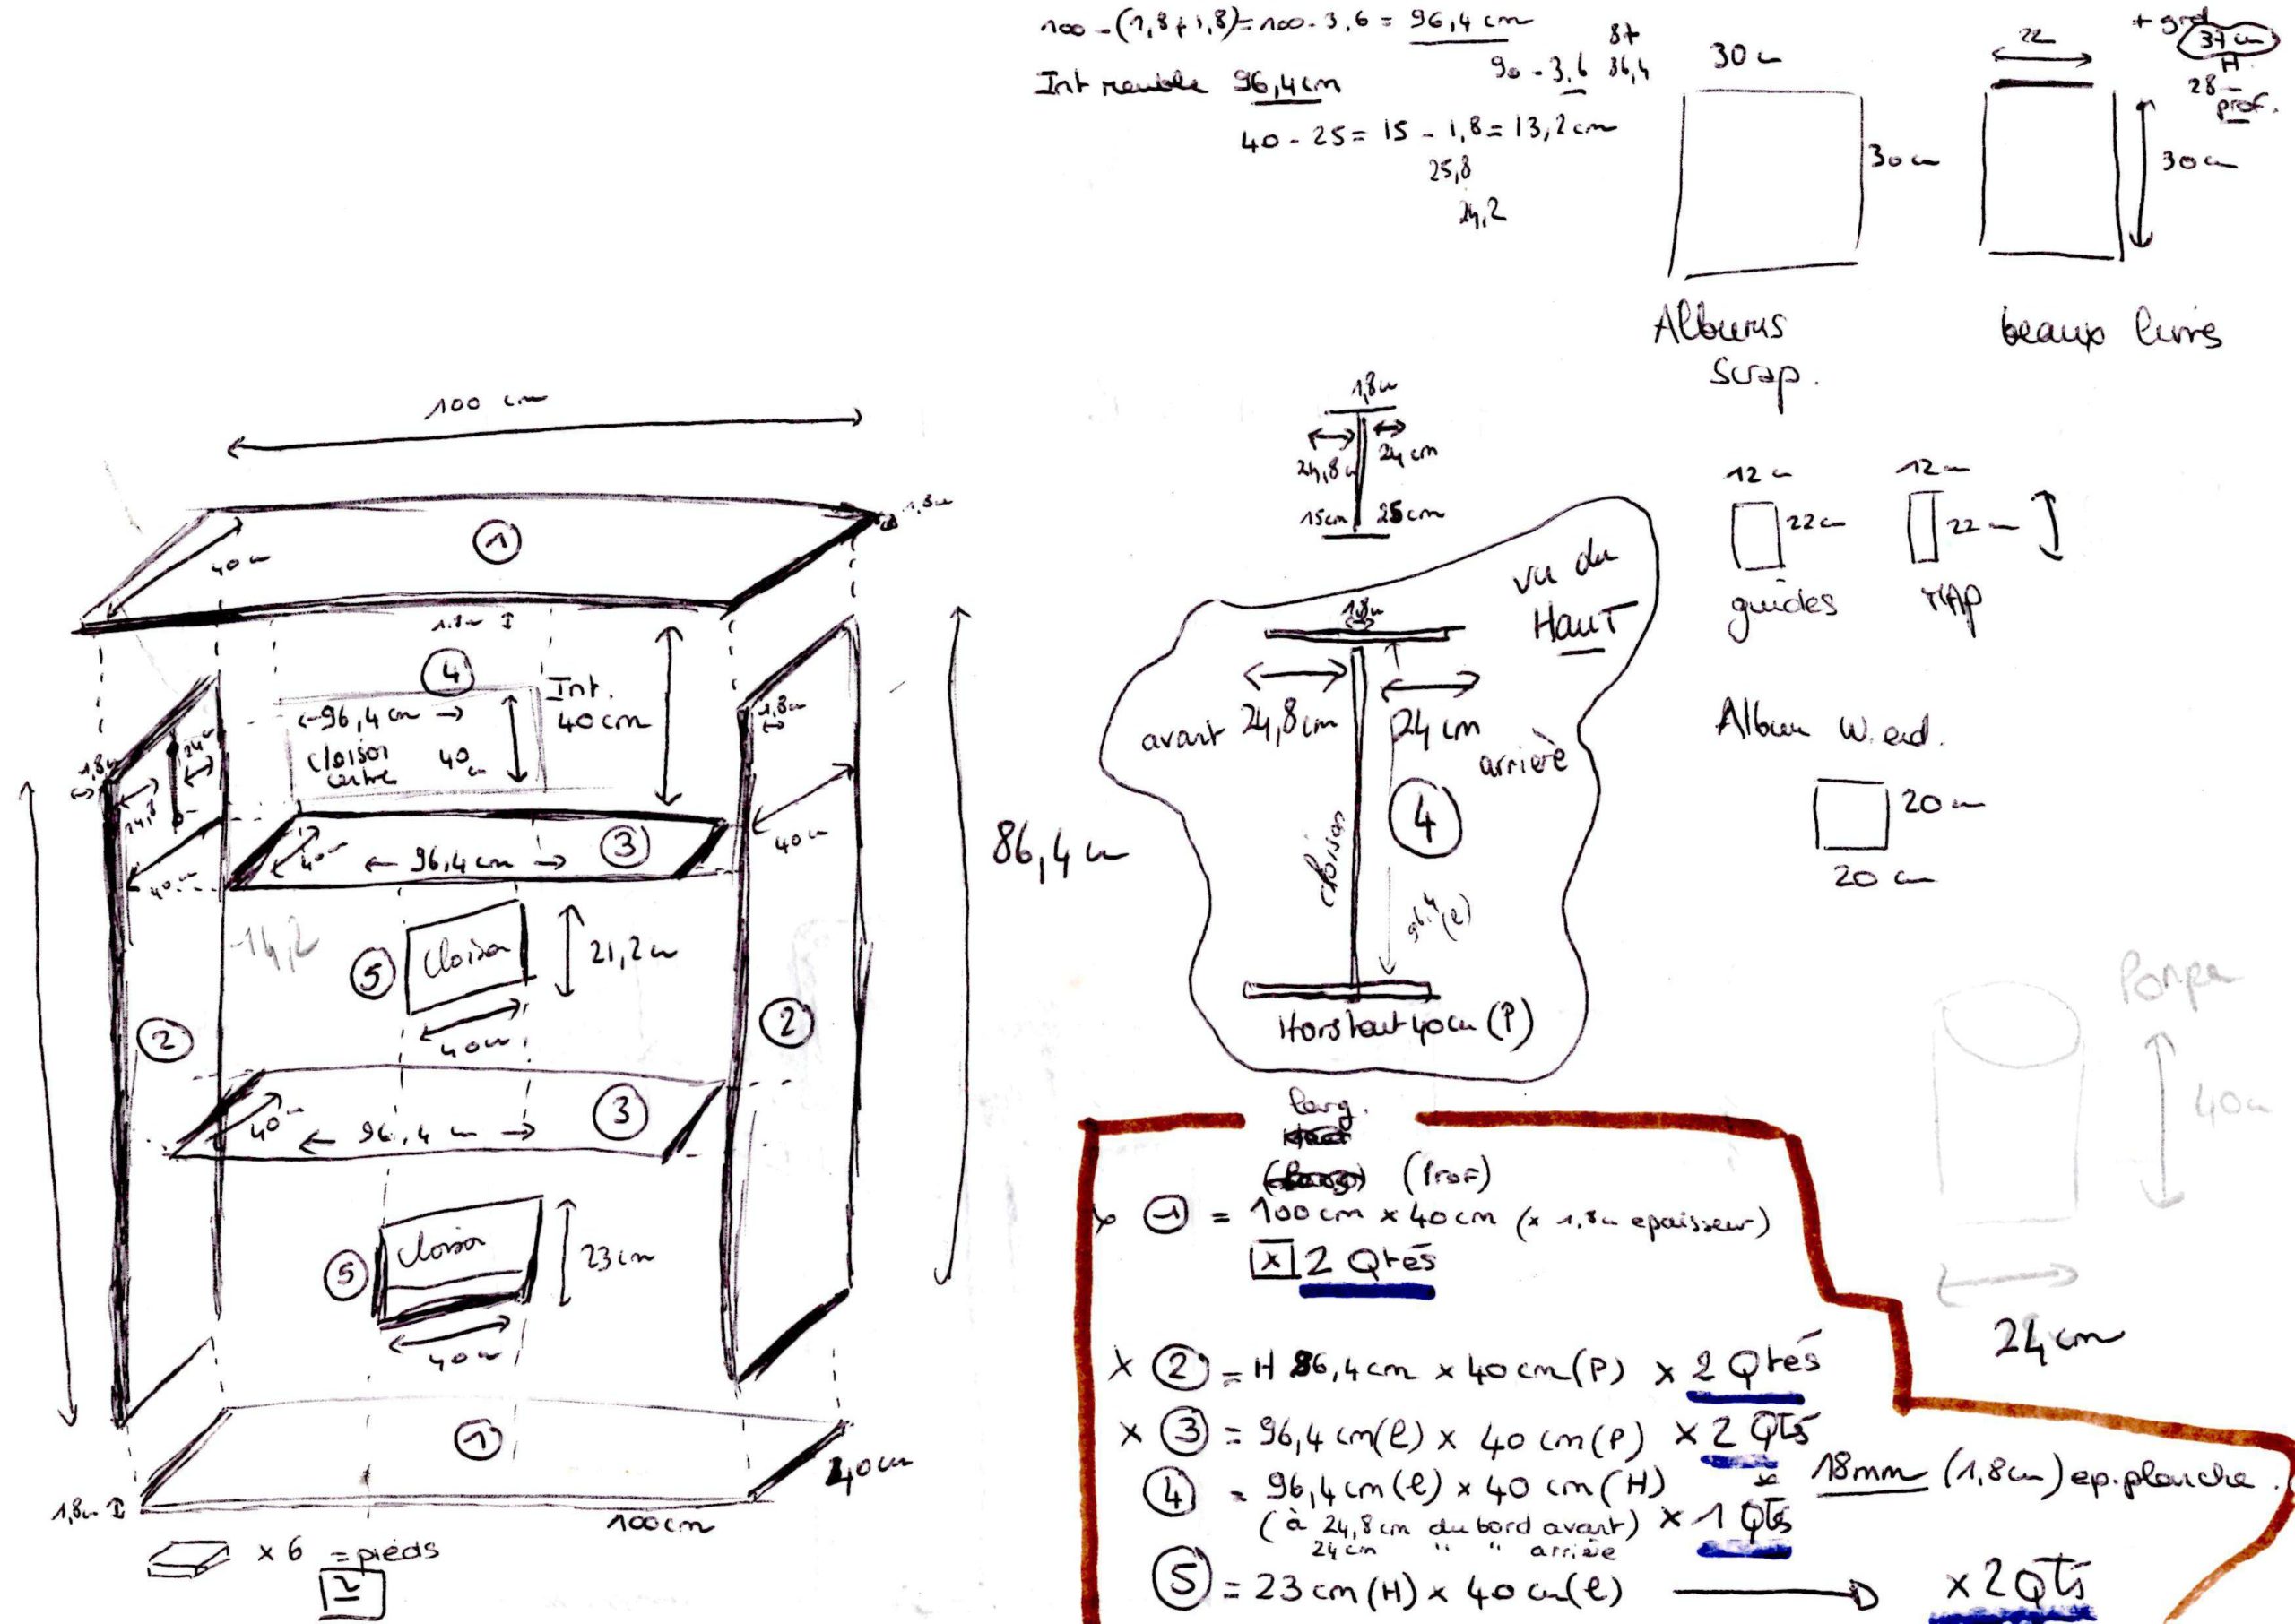 100 - (1,8 + 1,8) = 100 - 3,6 = 96,4 cm
Int meuble 96,4 cm
90 - 3,6
87
86,4
40 - 25 = 15 - 1,8 = 13,2 cm
25,8
24,2
30 cm
30 cm
Albums
Scrap.
22
+ grd
37 cm
H.
28
prof.
30 cm
beaux livres
12 cm
22 cm
guides
12 cm
22 cm
MAP
Album W.end.
20 cm
20 cm
1,8 cm
24,8 cm
24 cm
15 cm
25 cm
vu du
HAUT
1,8 cm
avant
24,8 cm
24 cm
arrière
4
cloison
96,4 (l)
Hors tout 40 cm (P)
40 cm
24 cm
100 cm
1,8 cm
40 cm
1
1,8 cm
4
96,4 cm
cloison
centre
40 cm
Int.
40 cm
1,8 cm
1,8 cm
24 cm
24,8
40 cm
40 cm
40 cm
96,4 cm
3
86,4 cm
14,2
5
Cloison
21,2 cm
40 cm
2
2
40 cm
96,4 cm
3
5
Cloison
23 cm
40 cm
1
40 cm
1,8 cm
100 cm
x 6 = pieds
2
larg.
(Prof)
x 1 = 100 cm x 40 cm (x 1,8 cm epaisseur)
x 2 Qtés
x 2 = H 86,4 cm x 40 cm (P) x 2 Qtés
x 3 = 96,4 cm (l) x 40 cm (P) x 2 Qtés
4 = 96,4 cm (l) x 40 cm (H)
(à 24,8 cm du bord avant) x 1 Qtés
24 cm " " arrière
* 18 mm (1,8 cm) ep. planche.
5 = 23 cm (H) x 40 cm (l) x 2 Qtés